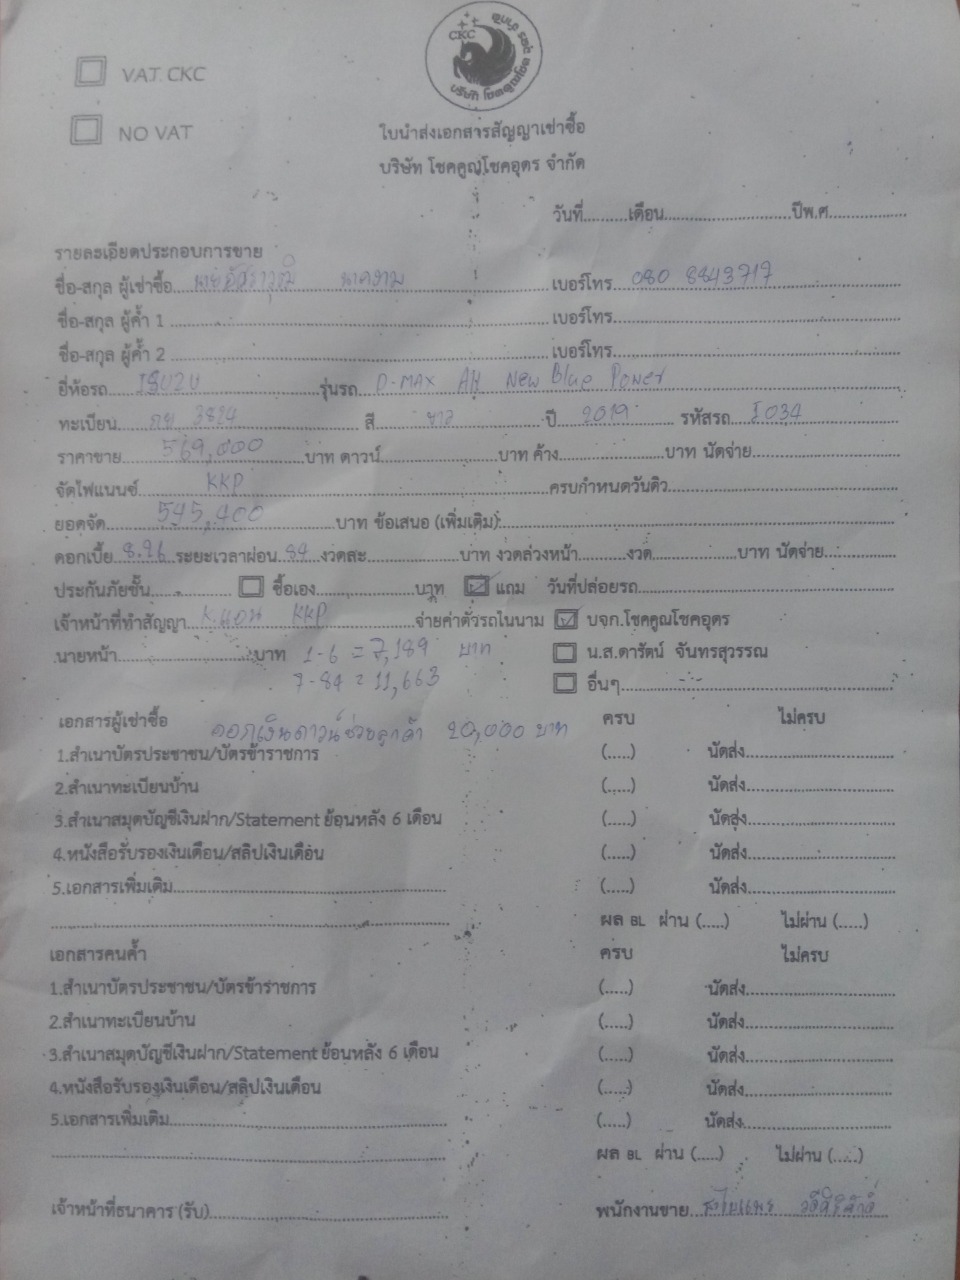 CKC
บริษัท โชคคูณโชคอุดร จำกัด
VAT. CKC
NO VAT
ใบนำส่งเอกสารสัญญาเช่าซื้อ
บริษัท โชคคูณโชคอุดร จำกัด
วันที่.........เดือน............................ปีพ.ศ.................
รายละเอียดประกอบการขาย
ชื่อ-สกุล ผู้เช่าซื้อ นายอัศราวุฒิ นาคงาม เบอร์โทร 080 8843717
ชื่อ-สกุล ผู้ค้ำ 1 .......... เบอร์โทร..........
ชื่อ-สกุล ผู้ค้ำ 2 .......... เบอร์โทร..........
ยี่ห้อรถ ISUZU รุ่นรถ D-MAX New Blue Power
ทะเบียน 3824 สี ขาว ปี 2019 รหัสรถ I034
ราคาขาย 569,000 บาท ดาวน์..........บาท ค้าง..........บาท นัดจ่าย..........
จัดไฟแนนซ์ KKP ครบกำหนดวันดิว..........
ยอดจัด 545,400 บาท ข้อเสนอ (เพิ่มเติม):..........
ดอกเบี้ย 8.26 ระยะเวลาผ่อน 84 งวดละ..........บาท งวดล่วงหน้า..........งวด..........บาท นัดจ่าย..........
ประกันภัยชั้น.......... ซื้อเอง..........บาท แถม วันที่ปล่อยรถ..........
เจ้าหน้าที่ทำสัญญา K.แอน KKP จ่ายค่าตัวรถในนาม บจก.โชคคูณโชคอุดร
นายหน้า..........บาท 1-6 = 7,189 บาท น.ส.ดารัตน์ จันทรสุวรรณ
7-84 = 11,663 อื่นๆ..........
เอกสารผู้เช่าซื้อ ครบ ไม่ครบ
ออกเงินดาวน์ช่วยลูกค้า 20,000 บาท
1.สำเนาบัตรประชาชน/บัตรข้าราชการ (.....) นัดส่ง..........
2.สำเนาทะเบียนบ้าน (.....) นัดส่ง..........
3.สำเนาสมุดบัญชีเงินฝาก/Statement ย้อนหลัง 6 เดือน (.....) นัดส่ง..........
4.หนังสือรับรองเงินเดือน/สลิปเงินเดือน (.....) นัดส่ง..........
5.เอกสารเพิ่มเติม.......... (.....) นัดส่ง..........
ผล BL ผ่าน (.....) ไม่ผ่าน (.....)
เอกสารคนค้ำ ครบ ไม่ครบ
1.สำเนาบัตรประชาชน/บัตรข้าราชการ (.....) นัดส่ง..........
2.สำเนาทะเบียนบ้าน (.....) นัดส่ง..........
3.สำเนาสมุดบัญชีเงินฝาก/Statement ย้อนหลัง 6 เดือน (.....) นัดส่ง..........
4.หนังสือรับรองเงินเดือน/สลิปเงินเดือน (.....) นัดส่ง..........
5.เอกสารเพิ่มเติม.......... (.....) นัดส่ง..........
ผล BL ผ่าน (.....) ไม่ผ่าน (.....)
เจ้าหน้าที่ธนาคาร (รับ).......... พนักงานขาย